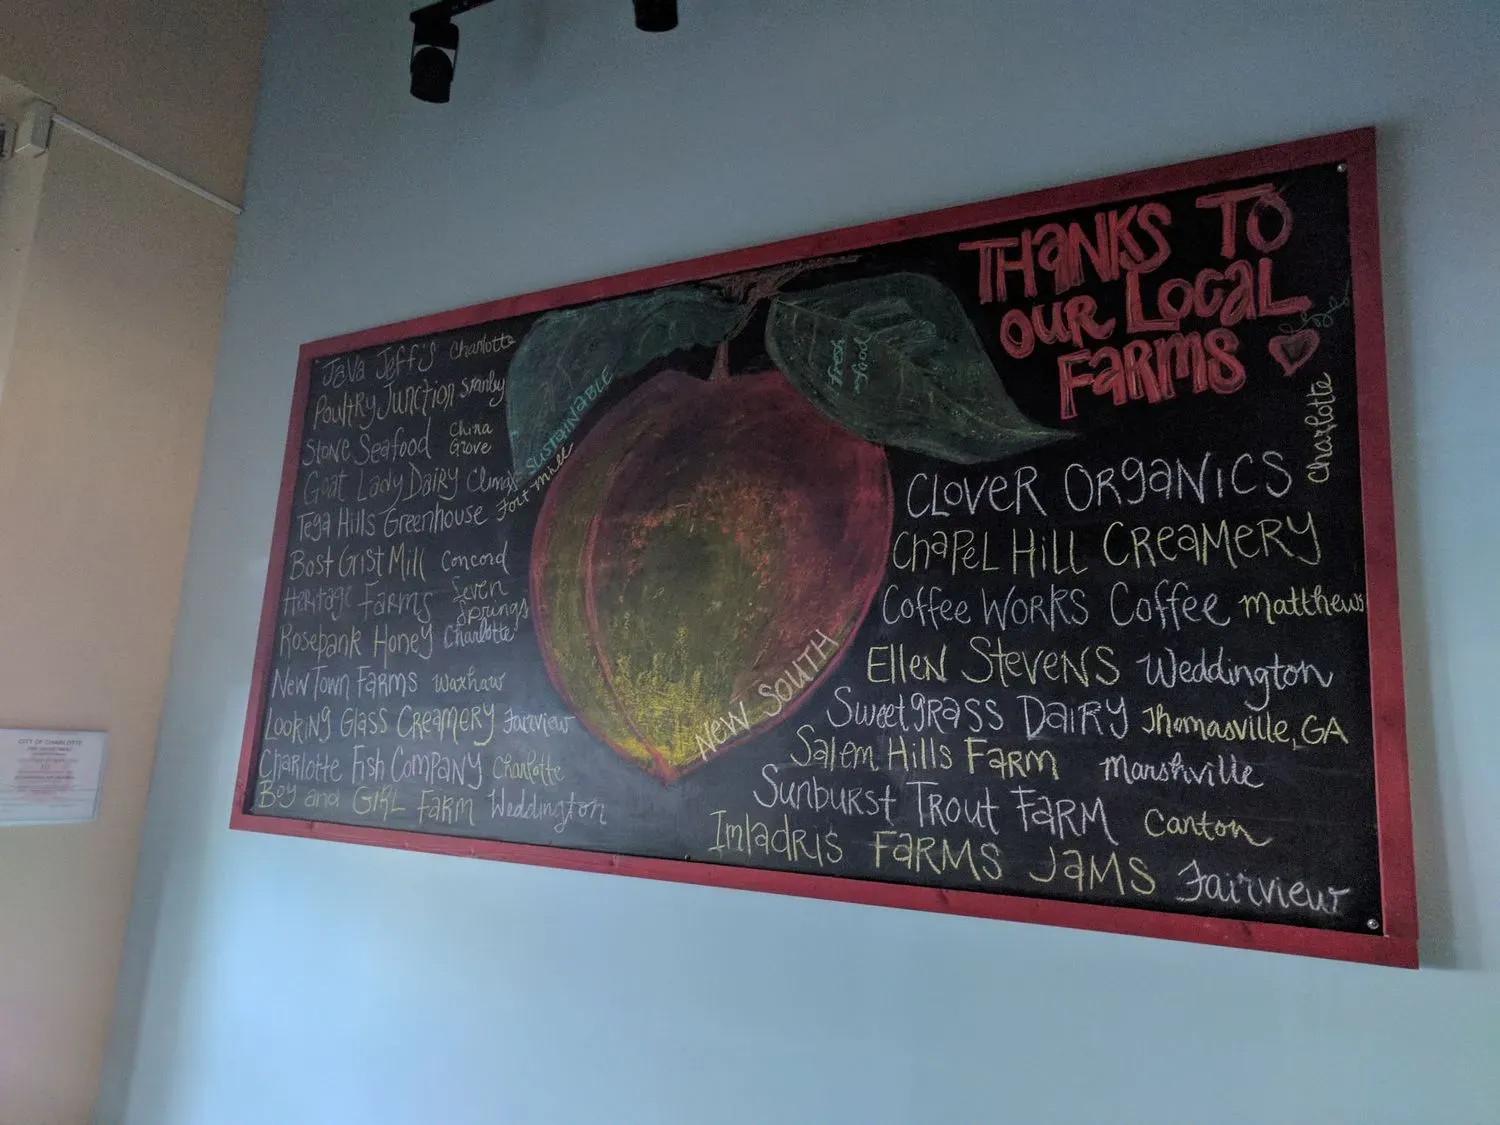 THANKS TO
OUR LOCAL
FARMS
JaVa Jeff's Charlotte
Poultry Junction Stanley
Stone Seafood China Grove
Goat Lady Dairy Climax
Tega Hills Greenhouse Fort Mill
Bost Grist Mill Concord
Heritage Farms Seven Springs
Rosebank Honey Charlotte
New Town Farms Waxhaw
Looking Glass Creamery Fairview
Charlotte Fish Company Charlotte
Boy and Girl Farm Weddington
SUSTAINABLE
fresh
food
NEW SOUTH
CLOVER ORGANICS Charlotte
Chapel Hill Creamery
Coffee Works Coffee Matthews
Ellen Stevens Weddington
Sweetgrass Dairy Thomasville, GA
Salem Hills Farm Marshville
Sunburst Trout Farm Canton
Imladris Farms Jams Fairview
CITY OF CHARLOTTE